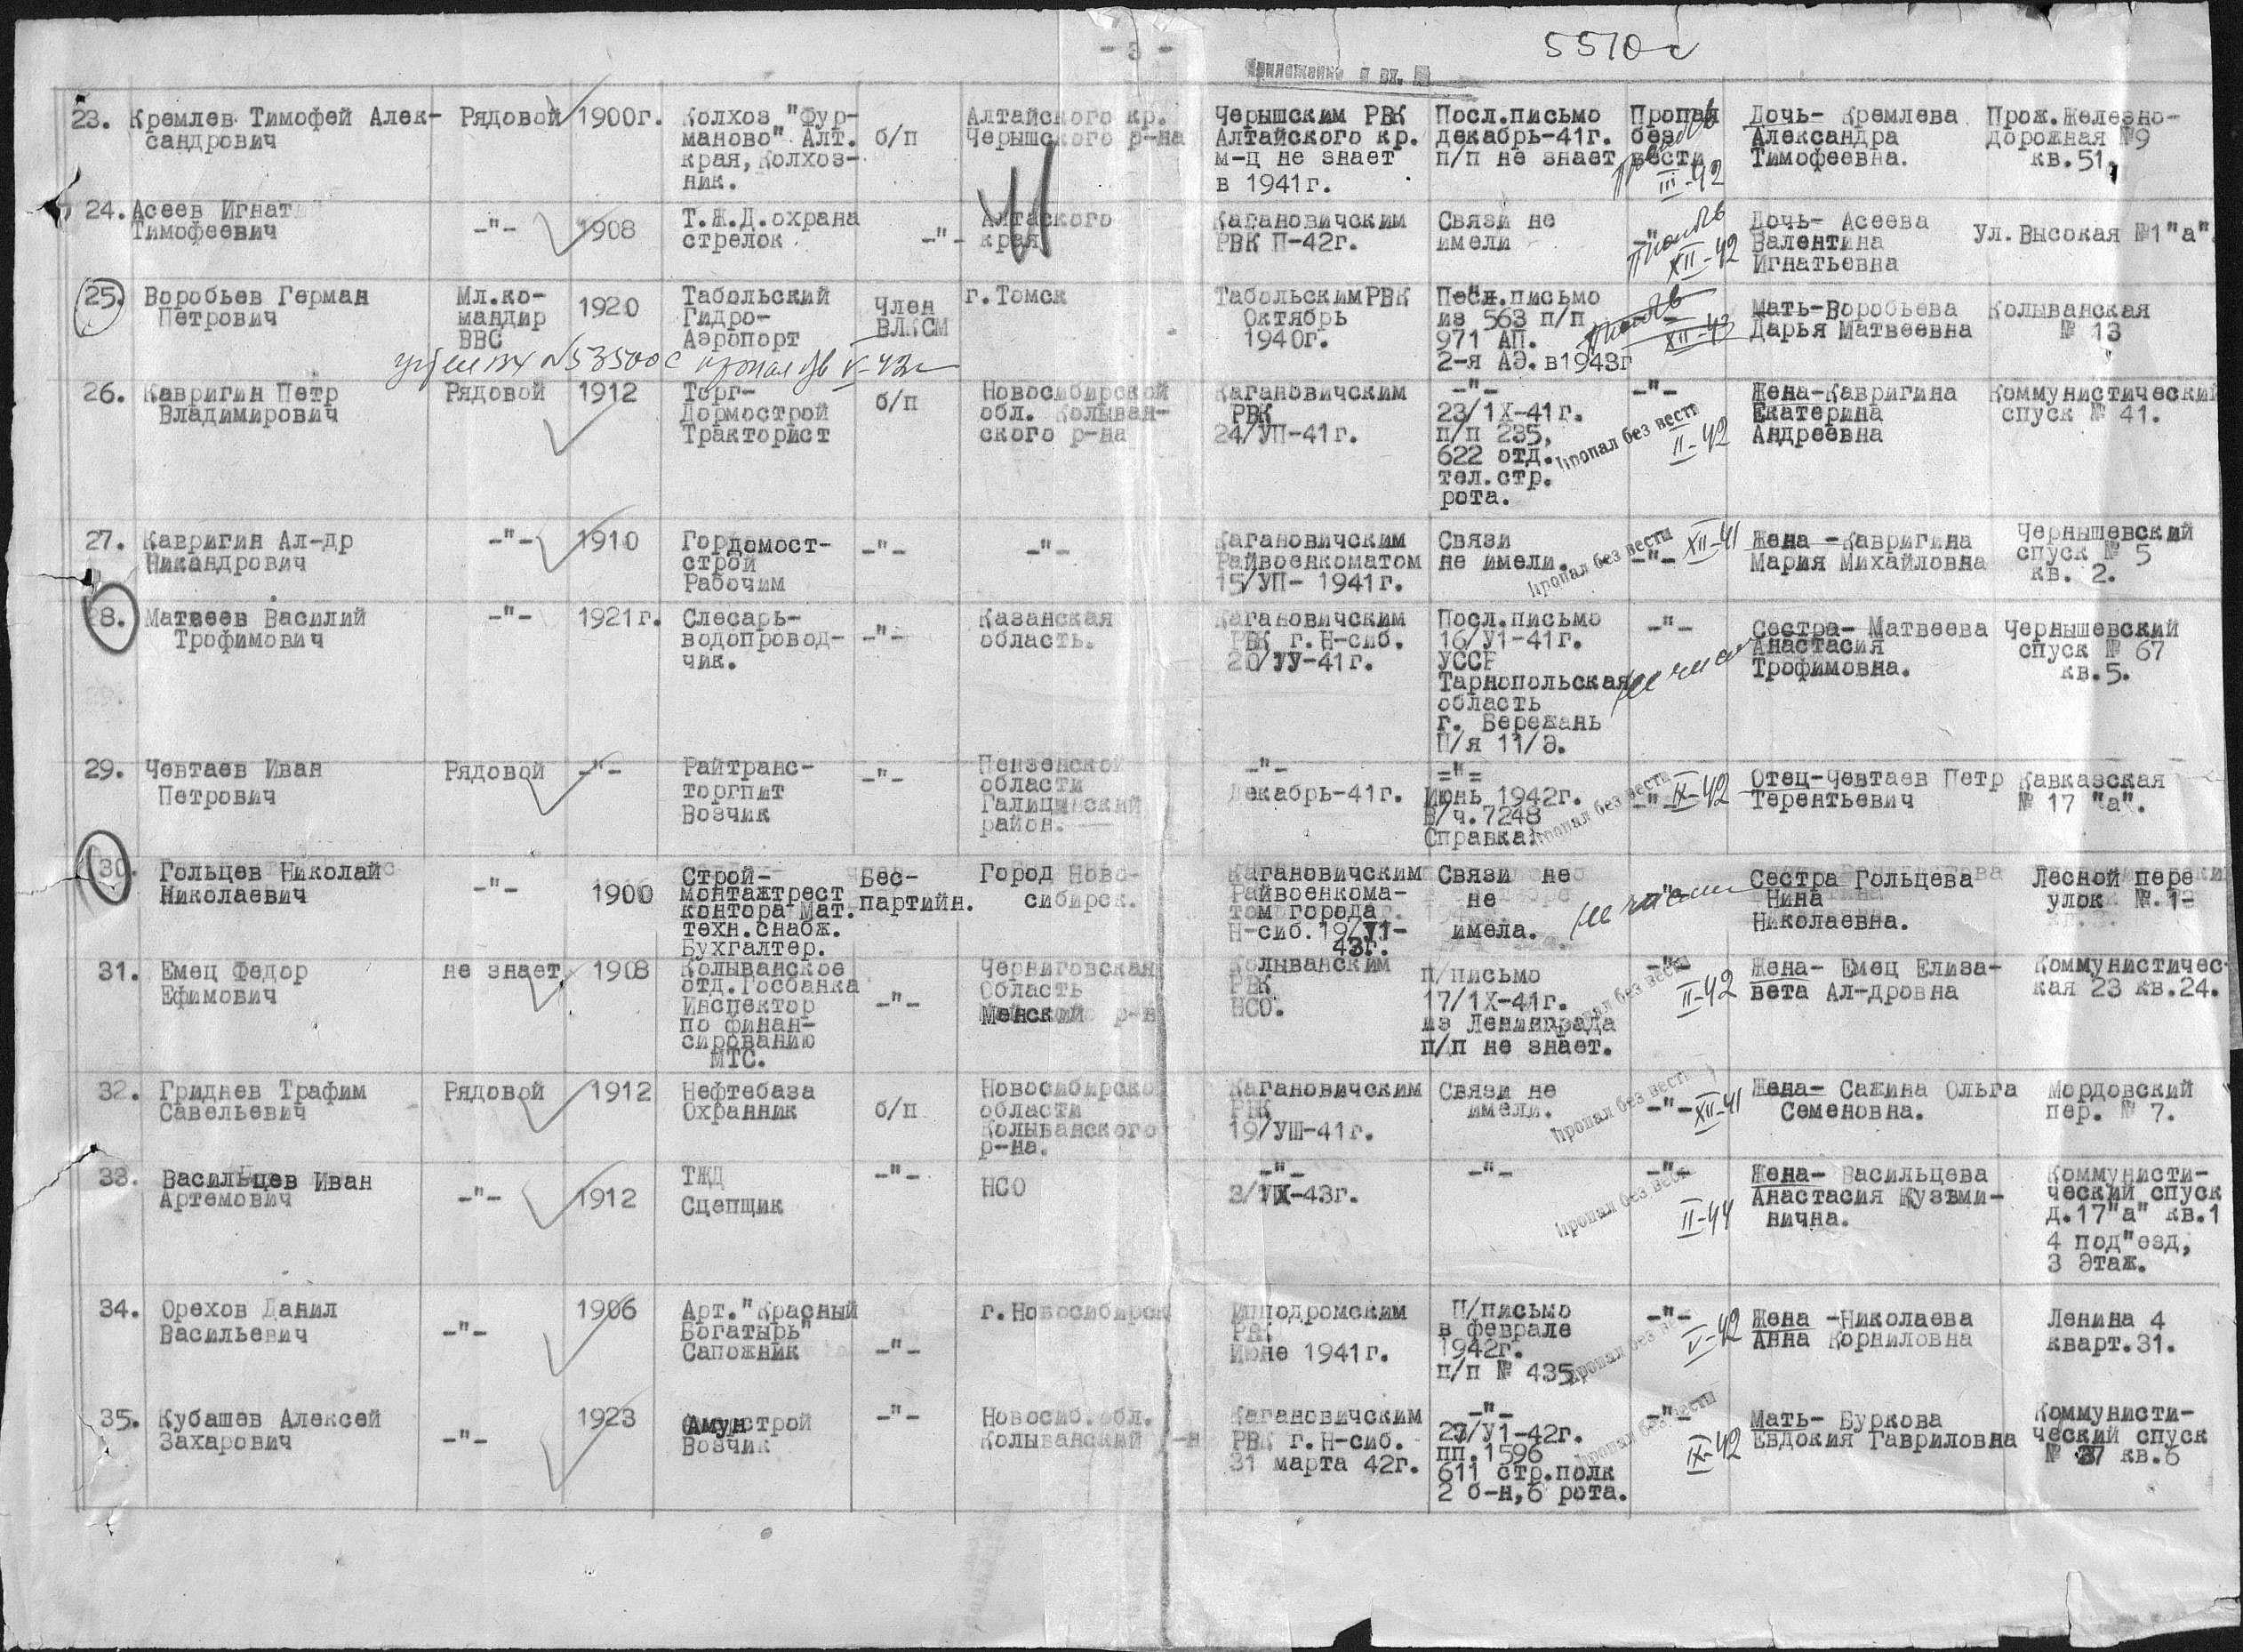 - 3 -
5510с
Приложение к вх. №
23. Кремлев Тимофей Алек-
сандрович
Рядовой
1900г.
Колхоз "Фур-
маново" Алт.
края, Колхоз-
ник.
б/п
Алтайского кр.
Черышского р-на
Черышским РВК
Алтайского кр.
м-ц не знает
в 1941г.
Посл.письмо
декабрь-41г.
п/п не знает
Пропал
без
вести
III-42
Дочь- Кремлева
Александра
Тимофеевна.
Прож.Железно-
дорожная №9
кв.51.
24. Асеев Игнат
Тимофеевич
-"-
1908
Т.Ж.Д.охрана
стрелок
-"-
Алтаского
края
Кагановичским
РВК П-42г.
Связи не
имели
-"-
XII-42
Дочь- Асеева
Валентина
Игнатьевна
Ул.Высокая №1"а".
25. Воробьев Герман
Петрович
Мл.ко-
мандир
ВВС
1920
Табольский
Гидро-
Аэропорт
Член
ВЛКСМ
г.Томск
Табольским РВК
Октябрь
1940г.
Посл.письмо
из 563 п/п
971 АП.
2-я АЭ.в1943г
XII-43
Мать-Воробьева
Дарья Матвеевна
Колыванская
№ 13
вх №53500с пропал бв V-43г
26. Кавригин Петр
Владимирович
Рядовой
1912
Торг-
Дормострой
Тракторист
б/п
Новосибирской
обл. Колыван-
ского р-на
Кагановичским
РВК
24/УП-41г.
-"-
23/1Х-41г.
п/п 235,
622 отд.
тел.стр.
рота.
-"-
Пропал без вести
II-42
Жена-Кавригина
Екатерина
Андреевна
Коммунистический
спуск № 41.
27. Кавригин Ал-др
Никандрович
-"-
1910
Гордомост-
строй
Рабочим
-"-
-"-
Кагановичским
Райвоенкоматом
15/УП- 1941г.
Связи
не имели.
Пропал без вести
-"-
XII-41
Жена -Кавригина
Мария Михайловна
Чернышевский
спуск № 5
кв. 2.
28. Матвеев Василий
Трофимович
-"-
1921г.
Слесарь-
водопровод-
чик.
-"-
Казанская
область.
Кагановичским
РВК г.Н-сиб.
20/УУ-41г.
Посл.письмо
16/У1-41г.
УССР
Тарнопольская
область
г. Бережань
П/я 11/Э.
-"-
Сестра- Матвеева
Анастасия
Трофимовна.
Чернышевский
спуск № 67
кв.5.
29. Чевтаев Иван
Петрович
Рядовой
-"-
Райтранс-
торгпит
Возчик
-"-
Пензенской
области
Галицинский
район.
-"-
Декабрь-41г.
="=
Июнь 1942г.
В/ч.7248
Справка.
Пропал без вести
-"-
IX-42
Отец-Чевтаев Петр
Терентьевич
Кавказская
№ 17 "а".
30. Гольцев Николай
Николаевич
-"-
1900
Строй-
монтажтрест
контора Мат.
техн.снабж.
Бухгалтер.
Бес-
партийн.
Город Ново-
сибирск.
Кагановичским
Райвоенкома-
том города
Н-сиб.19/У1-
43г.
Связи не
не
имела.
-"-
Сестра Гольцева
Нина
Николаевна.
Лесной пере
улок №.1-
31. Емец Федор
Ефимович
не знает
1908
Колыванское
отд.Госбанка
Инспектор
по финан-
сированию
МТС.
-"-
Черниговская
Область
Менский р-н
Колыванским
РВК
НСО.
п/письмо
17/1Х-41г.
из Ленинграда
п/п не знает.
-"-
Пропал без вести
II-42
Жена- Емец Елиза-
вета Ал-дровна
Коммунистичес-
кая 23 кв.24.
32. Гриднев Трафим
Савельевич
Рядовой
1912
Нефтебаза
Охранник
б/п
Новосибирско
области
Колыванского
р-на.
Кагановичским
РВК
19/УШ-41г.
Связи не
имели.
Пропал без вести
-"-
XII-41
Жена- Сажина Ольга
Семеновна.
Мордовский
пер. № 7.
33. Васильцев Иван
Артемович
-"-
1912
ТЖД
Сцепщик
-"-
НСО
-"-
3/1Х-43г.
-"-
-"-
Пропал без вести
II-44
Жена- Васильцева
Анастасия Кузьми-
нична.
Коммунисти-
ческий спуск
д.17"а" кв.1
4 под"езд,
3 Этаж.
34. Орехов Данил
Васильевич
-"-
1906
Арт."Красный
Богатырь"
Сапожник
-"-
г.Новосибирск
Ипподромским
РВК
Июне 1941г.
П/письмо
в феврале
1942г.
п/п № 435
-"-
Пропал без вести
V-42
Жена -Николаева
Анна Корниловна
Ленина 4
кварт.31.
35. Кубашев Алексей
Захарович
-"-
1923
Амунстрой
Возчик
-"-
Новосиб.обл.
Колыванский р-н
Кагановичским
РВК г.Н-сиб.
31 марта 42г.
-"-
27/У1-42г.
пп.1596
611 стр.полк
2 б-н,6 рота.
-"-
Пропал без вести
IX-42
Мать- Буркова
Евдокия Гавриловна
Коммунисти-
ческий спуск
№ 37 кв.6